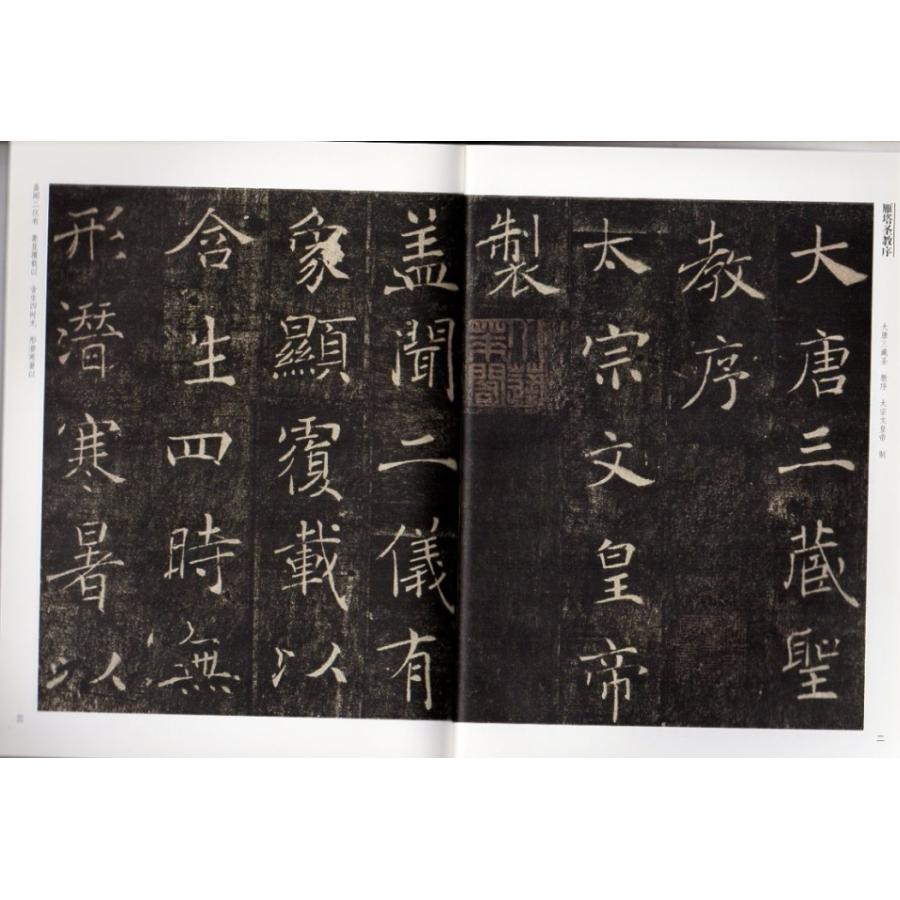 雁塔圣教序
大唐三藏圣 教序 太宗文皇帝 制
大唐三藏聖
教序
太宗文皇帝
製
盖聞二儀有
象顯覆載以
含生四時無
形潛寒暑以
盖闻二仪有 象显覆载以 含生四时无 形潜寒暑以
二